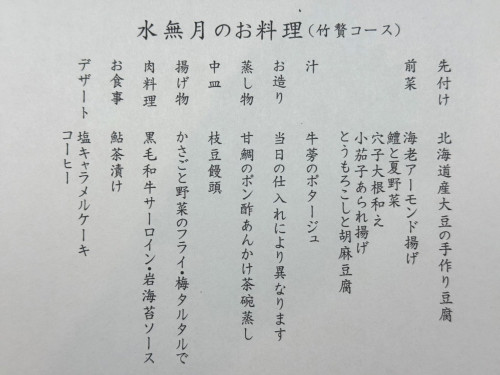 水無月のお料理（竹贅コース）
先付け　北海道産大豆の手作り豆腐
前菜　海老アーモンド揚げ
鱧と夏野菜
穴子大根和え
小茄子あられ揚げ
とうもろこしと胡麻豆腐
汁　牛蒡のポタージュ
お造り　当日の仕入れにより異なります
蒸し物　甘鯛のポン酢あんかけ茶碗蒸し
中皿　枝豆饅頭
揚げ物　かさごと野菜のフライ・梅タルタルで
肉料理　黒毛和牛サーロイン・岩海苔ソース
お食事　鮎茶漬け
デザート　塩キャラメルケーキ
コーヒー